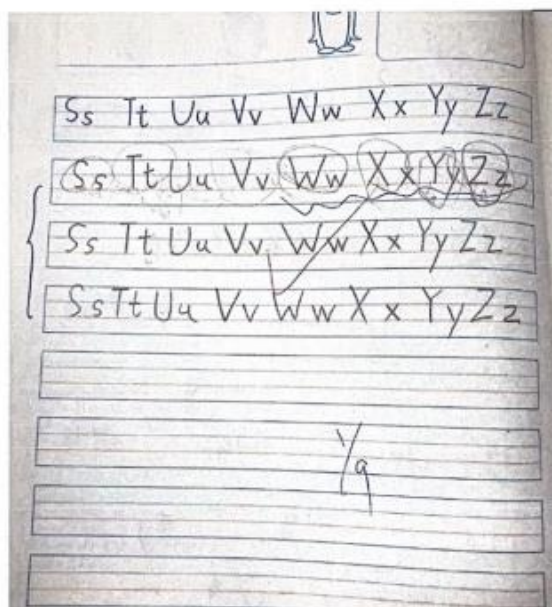 Ss Tt Uu Vv Ww Xx Yy Zz
Ss Tt Uu Vv Ww Xx Yy Zz
Ss Tt Uu Vv Ww Xx Yy Zz
Ss Tt Uu Vv Ww Xx Yy Zz